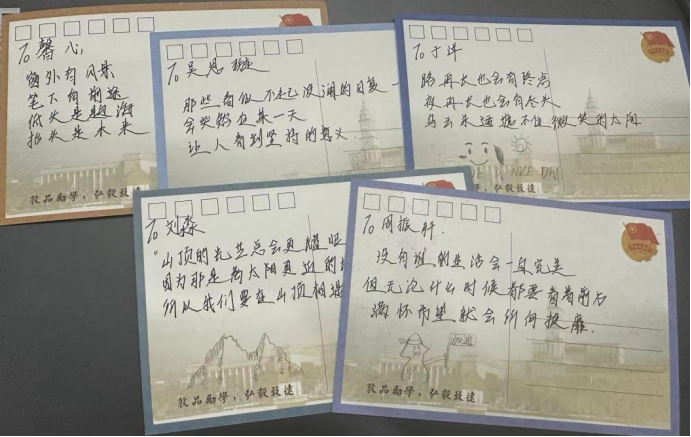 To 馨心,
窗外有风景
笔下有前途
低头是题海
抬头是未来
敦品励學，弘毅致遠
To 吴思璇
那些看似不起波澜的日复一
会突然在某一天
让人看到坚持的意义
To 于洋
路再长也会有终点
夜再长也会有尽头
乌云永远挡不住微笑的太阳
NICE DA
To 刘淼
"山顶的光芒总会更耀眼
因为那是离太阳更近的
所以我们要在山顶相
敦品励學，弘毅致遠
To 周振轩.
没有谁的生活会一直完美
但无论什么时候都要看着前方
满怀希望就会所向披靡.
加油
敦品励學，弘毅致遠